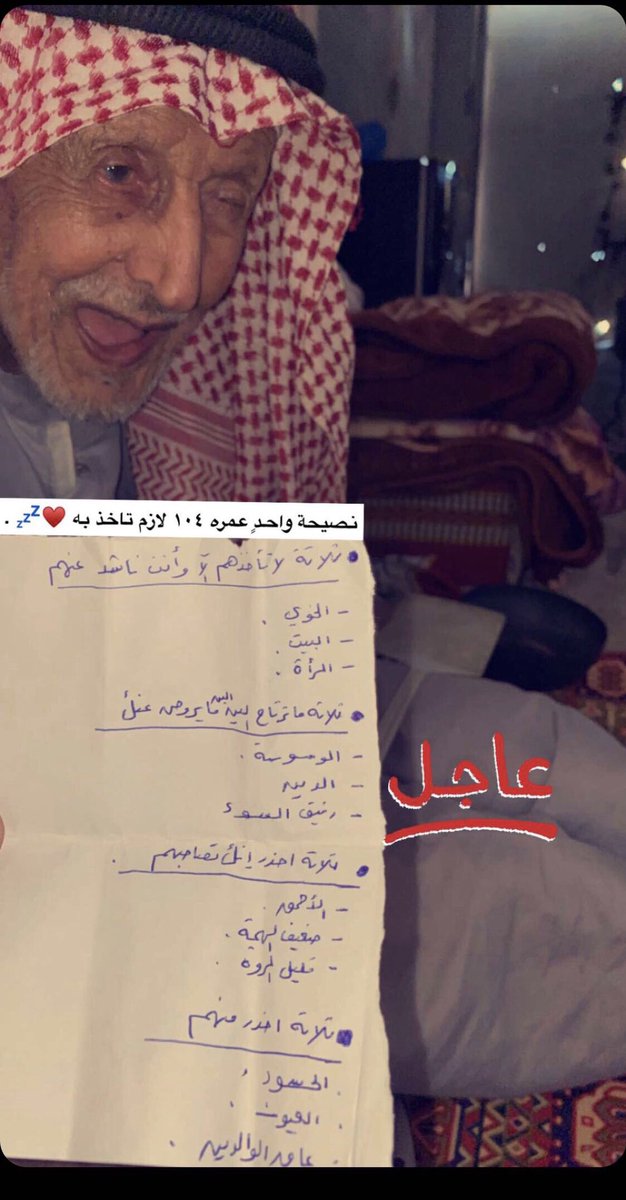 نصيحة واحدٍ عمره ١٠٤ لازم تاخذ به ♥️💤 .
ثلاثة لا تأخذهم إلا وأنت ناشد عنهم
– الخوي .
– البيت .
– المرأة .
ثلاثة ما ترتاح لين يروحن عنك
– الوسوسة .
– الدين
– رفيق السوء
عاجل
ثلاثة احذر إنك تصاحبهم .
– الأحمق .
– ضعيف الهمة .
– قليل المروه .
ثلاثة احذر منهم
. الحسود
. العيون .
عاق الوالدين .